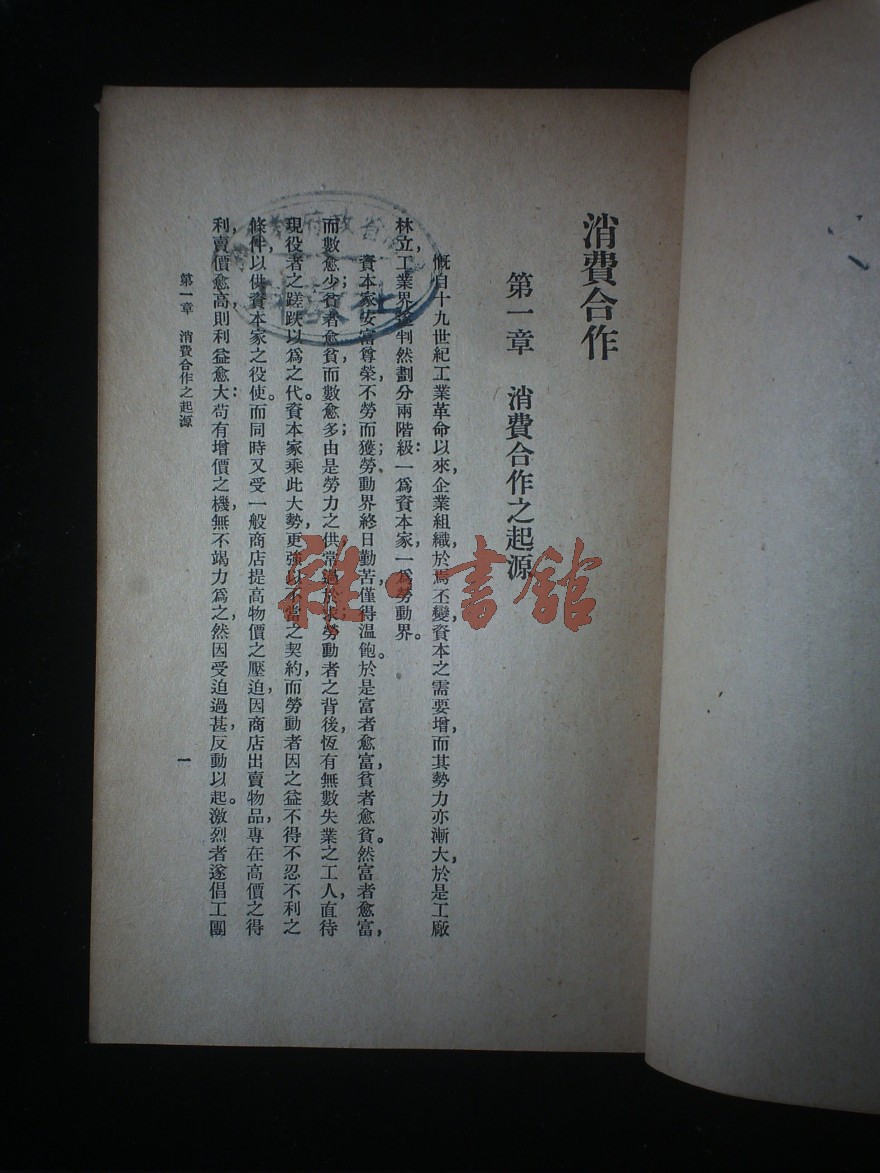 消費合作
第一章　消費合作之起源
慨自十九世紀工業革命以來，企業組織於焉丕變，資本之需要增，而其勢力亦漸大，於是工廠
林立，工業界遂判然劃分兩階級：一爲資本家，一爲勞動界。
資本家安富尊榮，不勞而獲；勞動界終日勤苦，僅得溫飽。於是富者愈富，貧者愈貧。然富者愈富，
而數愈少；貧者愈貧，而數愈多；由是勞力之供，常過於求；勞動者之背後，恆有無數失業之工人，直待
現役者之蹉跌以爲之代。資本家乘此大勢，更強以不當之契約，而勞動者因之益不得不忍不利之
條件，以供資本家之役使。而同時又受一般商店提高物價之壓迫，因商店出賣物品，專在高價之得
利，賣價愈高，則利益愈大；苟有增價之機，無不竭力爲之，然因受迫過甚，反動以起。激烈者遂倡工團
第一章　消費合作之起源
一
雜·書館